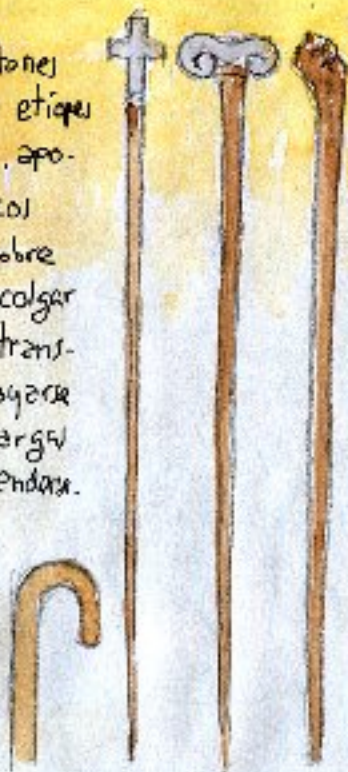 tones
etiopes
, apo-
cos
obre
colgar
trans-
oyarse
argas
enderse.